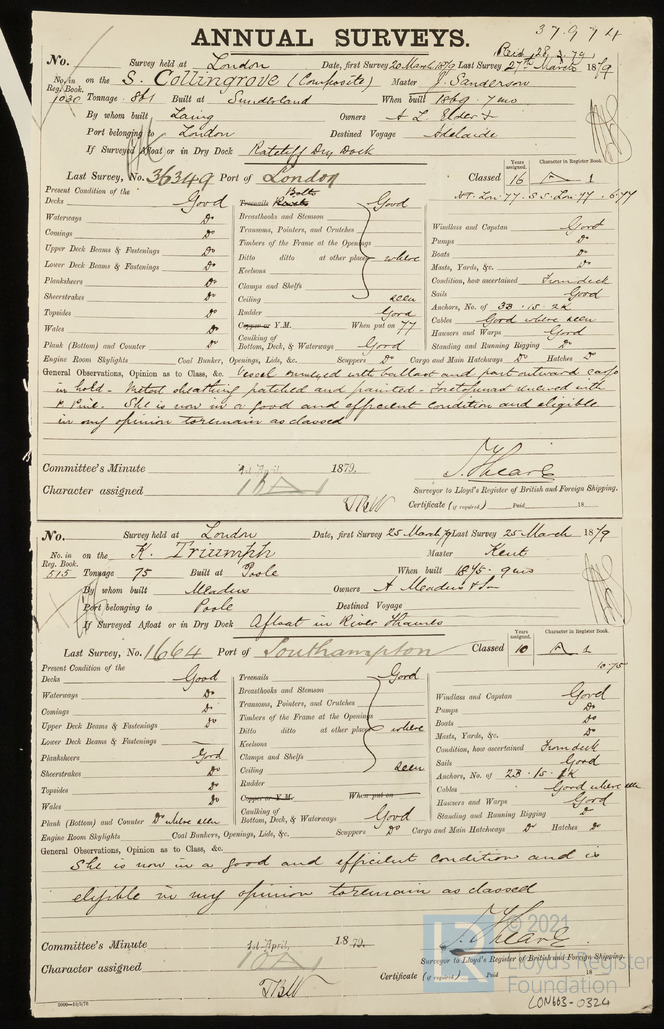 37974
ANNUAL SURVEYS.
No. Survey held at London Date, first Survey 20 March 1879 Last Survey 27th March 1879
No. in Reg. Book. on the S. Collingrove (Composite) Master J. Sanderson
1030 Tonnage 861 Built at Sunderland When built 1869. 7 mo
By whom built Laing Owners A L Elder &
Port belonging to London Destined Voyage Adelaide
If Surveyed Afloat or in Dry Dock Ratcliff Dry Dock
Last Survey, No. 36349 Port of London Classed Years assigned. 16 Character in Register Book. A 1
Present Condition of the
Decks Good
Waterways Do
Comings Do
Upper Deck Beams & Fastenings Do
Lower Deck Beams & Fastenings Do
Planksheers Do
Sheerstrakes Do
Topsides Do
Wales Do
Plank (Bottom) and Counter Do
Treenails Bolts Good
Breasthooks and Stemson
Transoms, Pointers, and Crutches
Timbers of the Frame at the Openings
Ditto ditto at other places where
Keelsons
Clamps and Shelfs
Ceiling seen
Rudder Good
Copper or Y.M. When put on 77
Caulking of Bottom, Deck, & Waterways Good
Windlass and Capstan Good
Pumps Do
Boats Do
Masts, Yards, &c. Do
Condition, how ascertained From deck
Sails Good
Anchors, No. of 3B. 1S. 2K
Cables Good where seen
Hawsers and Warps Good
Standing and Running Rigging Do
Engine Room Skylights Coal Bunker, Openings, Lids, &c. Scuppers Do Cargo and Main Hatchways Do Hatches Do
General Observations, Opinion as to Class, &c. Vessel examined with ballast and part outward cargo
in hold - Metal sheathing patched and painted - Topmast renewed with
P. Pine. She is now in a good and efficient condition and eligible
in my opinion to remain as classed
Committee's Minute 1st April, 1879.
Character assigned 16 A 1
Surveyor to Lloyd's Register of British and Foreign Shipping.
Certificate (if required) Paid 18
No. Survey held at London Date, first Survey 25 March 79 Last Survey 25 March 1879
No. in Reg. Book. on the K. Triumph Master Kent
515 Tonnage 75 Built at Poole When built 1875. 9 mo
By whom built Meadus Owners A Meadus & Son
Port belonging to Poole Destined Voyage
If Surveyed Afloat or in Dry Dock Afloat in River Thames
Last Survey, No. 1664 Port of Southampton Classed Years assigned. 10 Character in Register Book. A 1
10.75
Present Condition of the
Decks Good
Waterways Do
Comings Do
Upper Deck Beams & Fastenings Do
Lower Deck Beams & Fastenings
Planksheers Good
Sheerstrakes Do
Topsides Do
Wales Do
Plank (Bottom) and Counter Do where seen
Treenails Good
Breasthooks and Stemson
Transoms, Pointers, and Crutches
Timbers of the Frame at the Openings
Ditto ditto at other places where
Keelsons
Clamps and Shelfs
Ceiling seen
Rudder
Copper or Y.M. When put on
Caulking of Bottom, Deck, & Waterways Good
Windlass and Capstan Good
Pumps Do
Boats Do
Masts, Yards, &c. Do
Condition, how ascertained From deck
Sails Good
Anchors, No. of 2B. 1S. 2K
Cables Good where seen
Hawsers and Warps Good
Standing and Running Rigging Do
Engine Room Skylights Coal Bunkers, Openings, Lids, &c. Scuppers Do Cargo and Main Hatchways Do Hatches Do
General Observations, Opinion as to Class, &c.
She is now in a good and efficient condition and is
eligible in my opinion to remain as classed
Committee's Minute 1st April, 1879.
Character assigned 10 A 1
Surveyor to Lloyd's Register of British and Foreign Shipping.
Certificate (if required) Paid 18
© 2021
Lloyd's Register
Foundation
LON663-0324